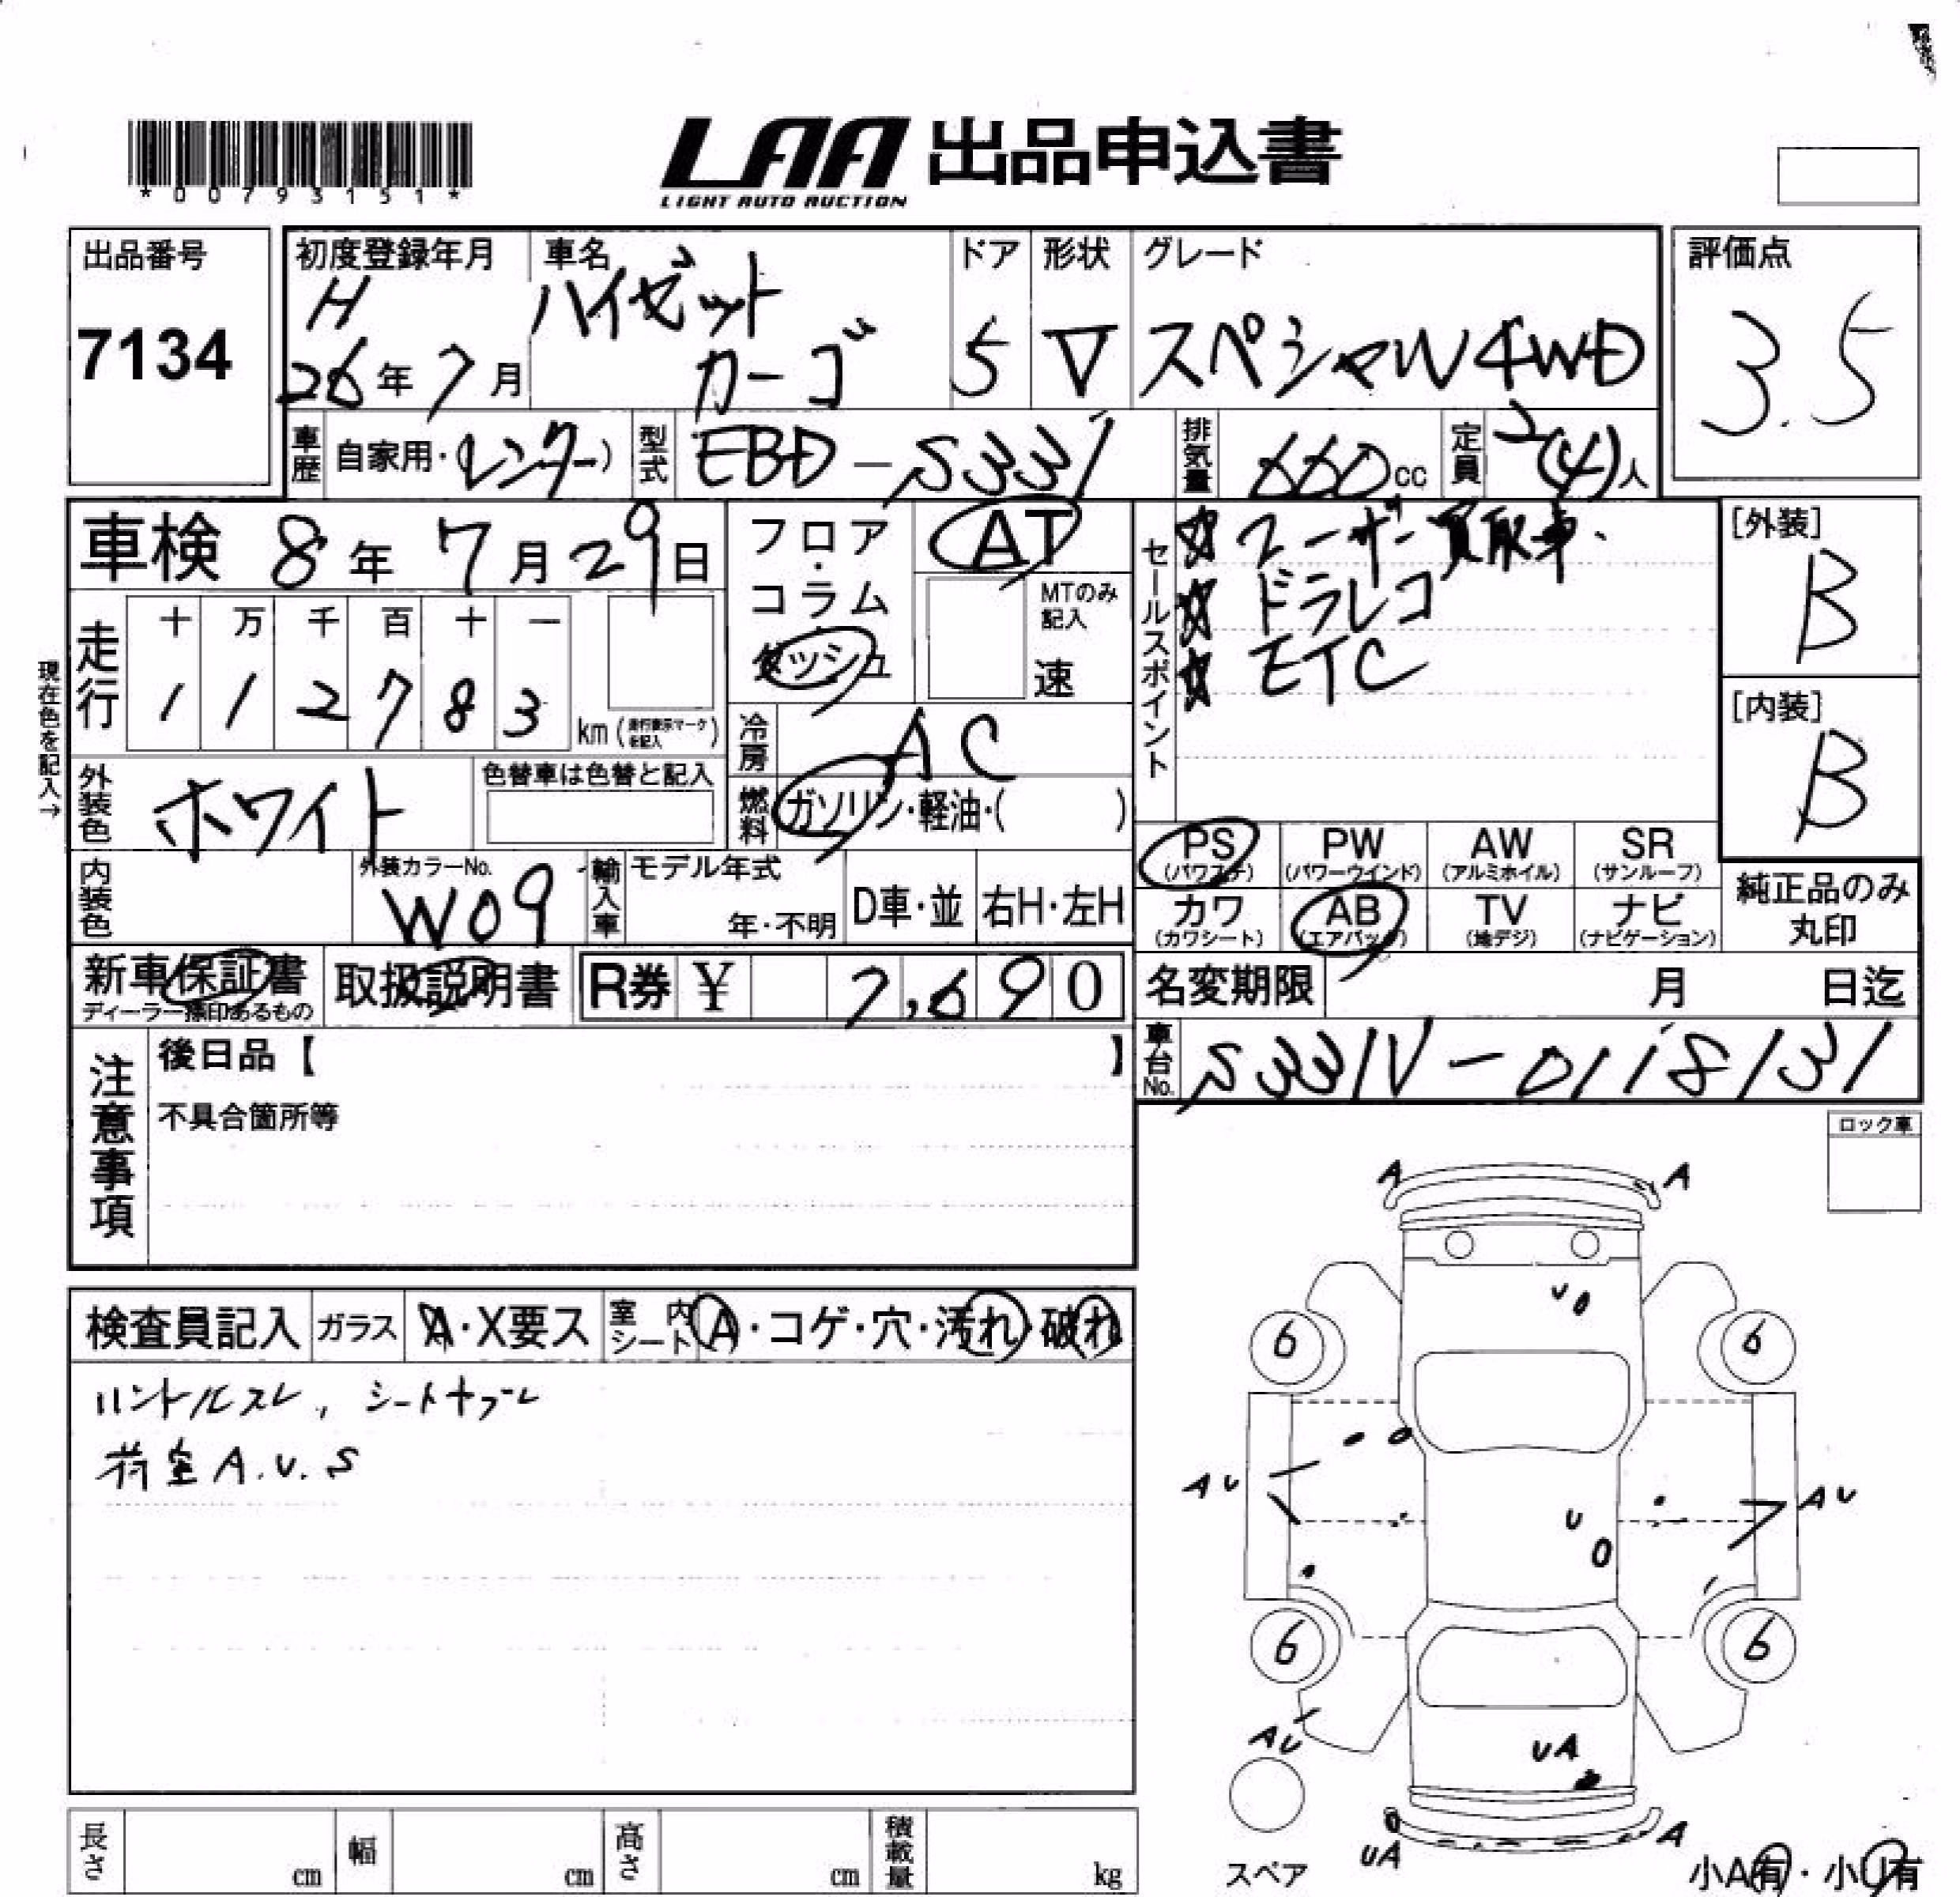 *00793151*
LAA 出品申込書
LIGHT AUTO AUCTION
出品番号
7134
初度登録年月
H
26年7月
車名
ハイゼット
カーゴ
ドア
5
形状
V
グレード
スペシャル4WD
評価点
3.5
車歴
自家用・(レンタカー)
型式
EBD-S331
排気量
660cc
定員
2(4)人
車検 8年7月29日
フロア・コラム
ダッシュ
AT
MTのみ記入
速
セールスポイント
☆ユーザー買取車.
☆ドラレコ
☆ETC
[外装]
B
[内装]
B
現在色を記入→
走行
十 万 千 百 十 一
1 1 2 7 8 3
km(走行表示マークを記入)
冷房
AC
外装色
ホワイト
色替車は色替と記入
燃料
ガソリン・軽油・( )
PS (パワステ)
PW (パワーウインド)
AW (アルミホイル)
SR (サンルーフ)
カワ (カワシート)
AB (エアバック)
TV (地デジ)
ナビ (ナビゲーション)
純正品のみ
丸印
内装色
外装カラーNo.
W09
輸入車
モデル年式
年・不明
D車・並
右H・左H
新車保証書
ディーラー捺印あるもの
取扱説明書
R券 ¥ 7,690
名変期限 月 日迄
車台No.
S331V-0118131
注意事項
後日品【 】
不具合箇所等
ロック車
検査員記入
ガラス
A・X要ス
室内シート
A・コゲ・穴・汚れ・破れ
ハンドルスレ,シート
荷室A.U.S
A A
U
6 6
AU AU
U
6 6
AU
UA
UA A
スペア
小A有・小U有
長さ cm
幅 cm
高さ cm
積載量 kg